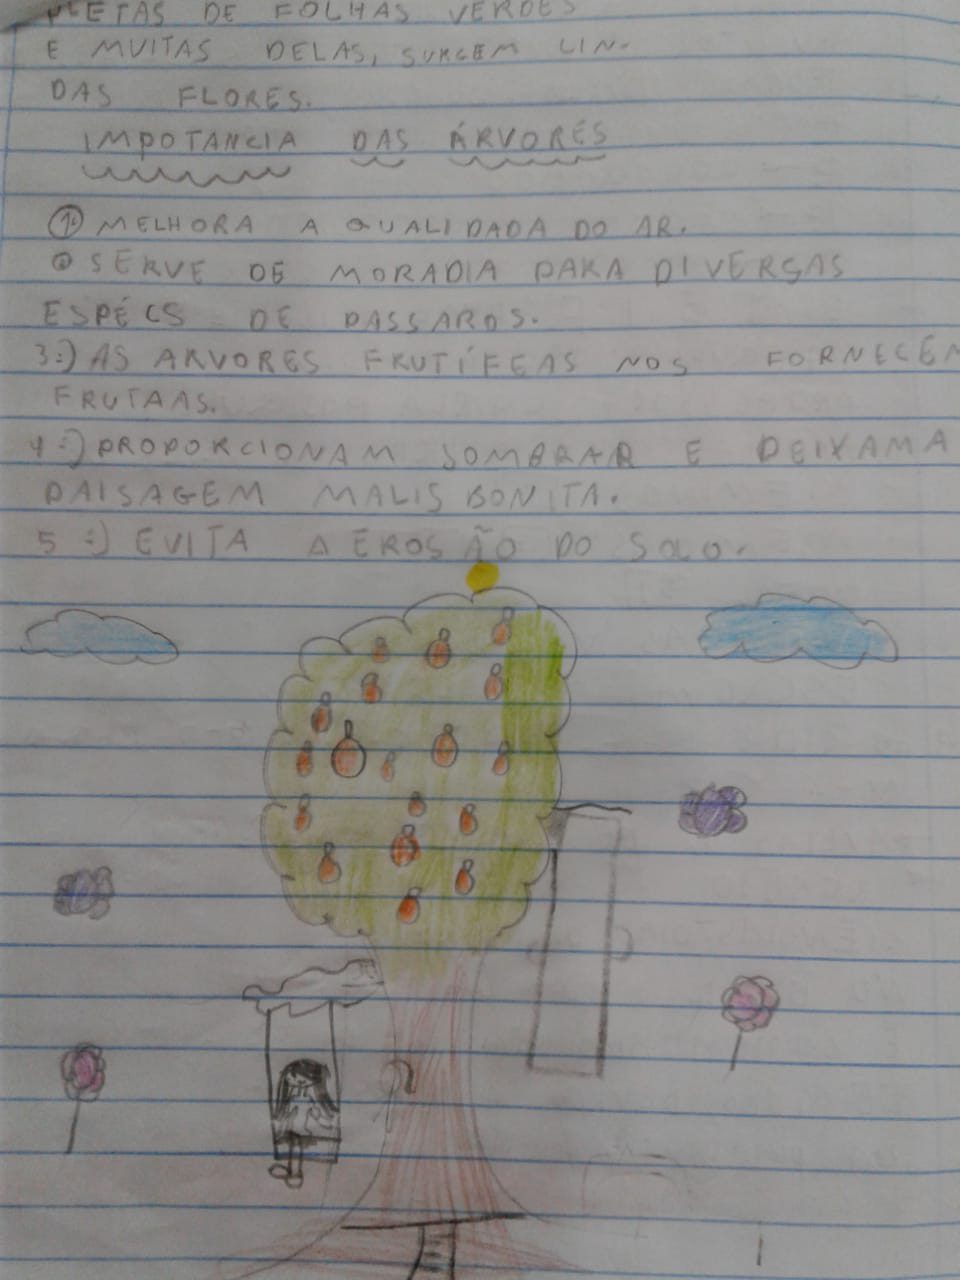 PLETAS DE FOLHAS VERDES
E MUITAS DELAS, SURGEM LIN-
DAS FLORES.
IMPOTANCIA DAS ÁRVORES
1. MELHORA A QUALIDADA DO AR.
SERVE DE MORADIA PARA DIVERSAS
ESPÉCS DE PASSAROS.
3:) AS ARVORES FRUTÍFEAS NOS FORNECEM
FRUTAAS.
4:) PROPORCIONAM SOMBRAR E DEIXAMA
PAISAGEM MALIS BONITA.
5:) EVITA A EROSÃO DO SOLO.